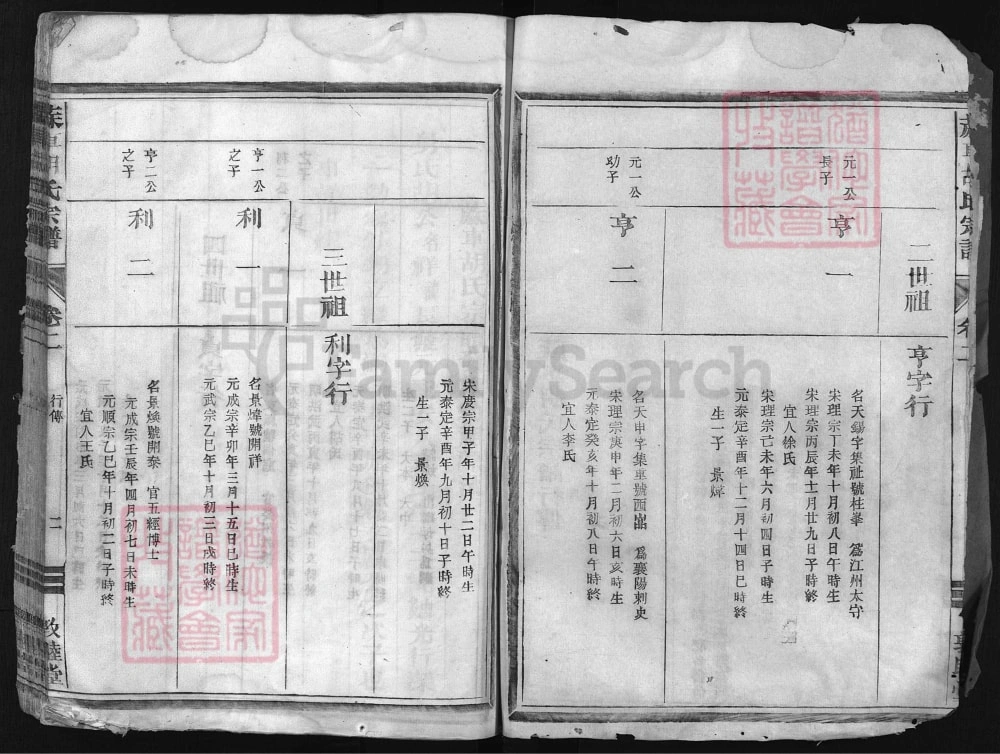 二世祖 亨字行
元一公
長子
亨一
名天錫字集祉號桂峯 爲江州太守
宋理宗丁未年十月初八日午時生
宋理宗丙辰年十一月廿九日子時終
宜人徐氏
宋理宗己未年六月初四日子時生
元泰定辛酉年十二月十四日巳時終
生一子 景煒
元一公
助子
亨二
名天申字集車號西岀 爲襄陽刺史
宋理宗庚申年二月初六日亥時生
元泰定癸亥年十月初八日午時終
宜人李氏
宋度宗甲子年十月廿二日午時生
元泰定辛酉年九月初十日子時終
生一子 景煥
三世祖 利字行
亨一公
之子
利一
名景煒號開祥
元成宗辛卯年三月十五日巳時生
元武宗乙巳年十月初三日戌時終
亨二公
之子
利二
名景煥號開泰 官五經博士
元成宗壬辰年四月初七日未時生
元順宗乙巳年十月初二日子時終
宜人王氏
氏宗譜
卷二
行傳
二
敦睦堂
FamilySearch